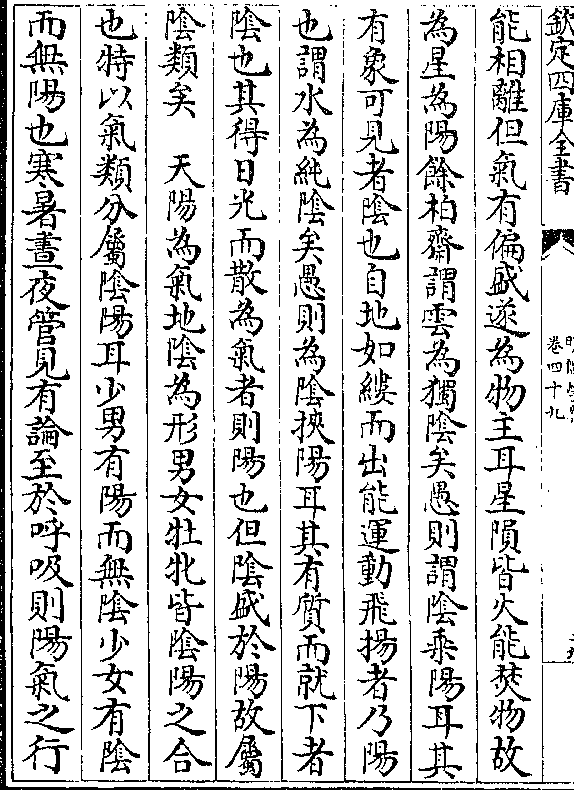 欽定四庫全書
卷四十九
能相離但氣有偏盛遂為物王耳星隕皆火能焚物故
為星為陽餘柏齋謂雲為獨陰矣愚則謂陰乘陽耳其
有象可見者陰也自地如縷而出能運動飛揚者乃陽
也謂水為純陰矣愚則為陰挾陽耳其有質而就下者
陰也其得日光而散為氣者則陽也但陰盛於陽故屬
陰類矣　天陽為氣地陰為形男女牡牝皆陰陽之合
也特以氣類分屬陰陽耳少男有陽而無陰少女有陰
而無陽也寒暑晝夜管見有論至於呼吸則陽氣之行